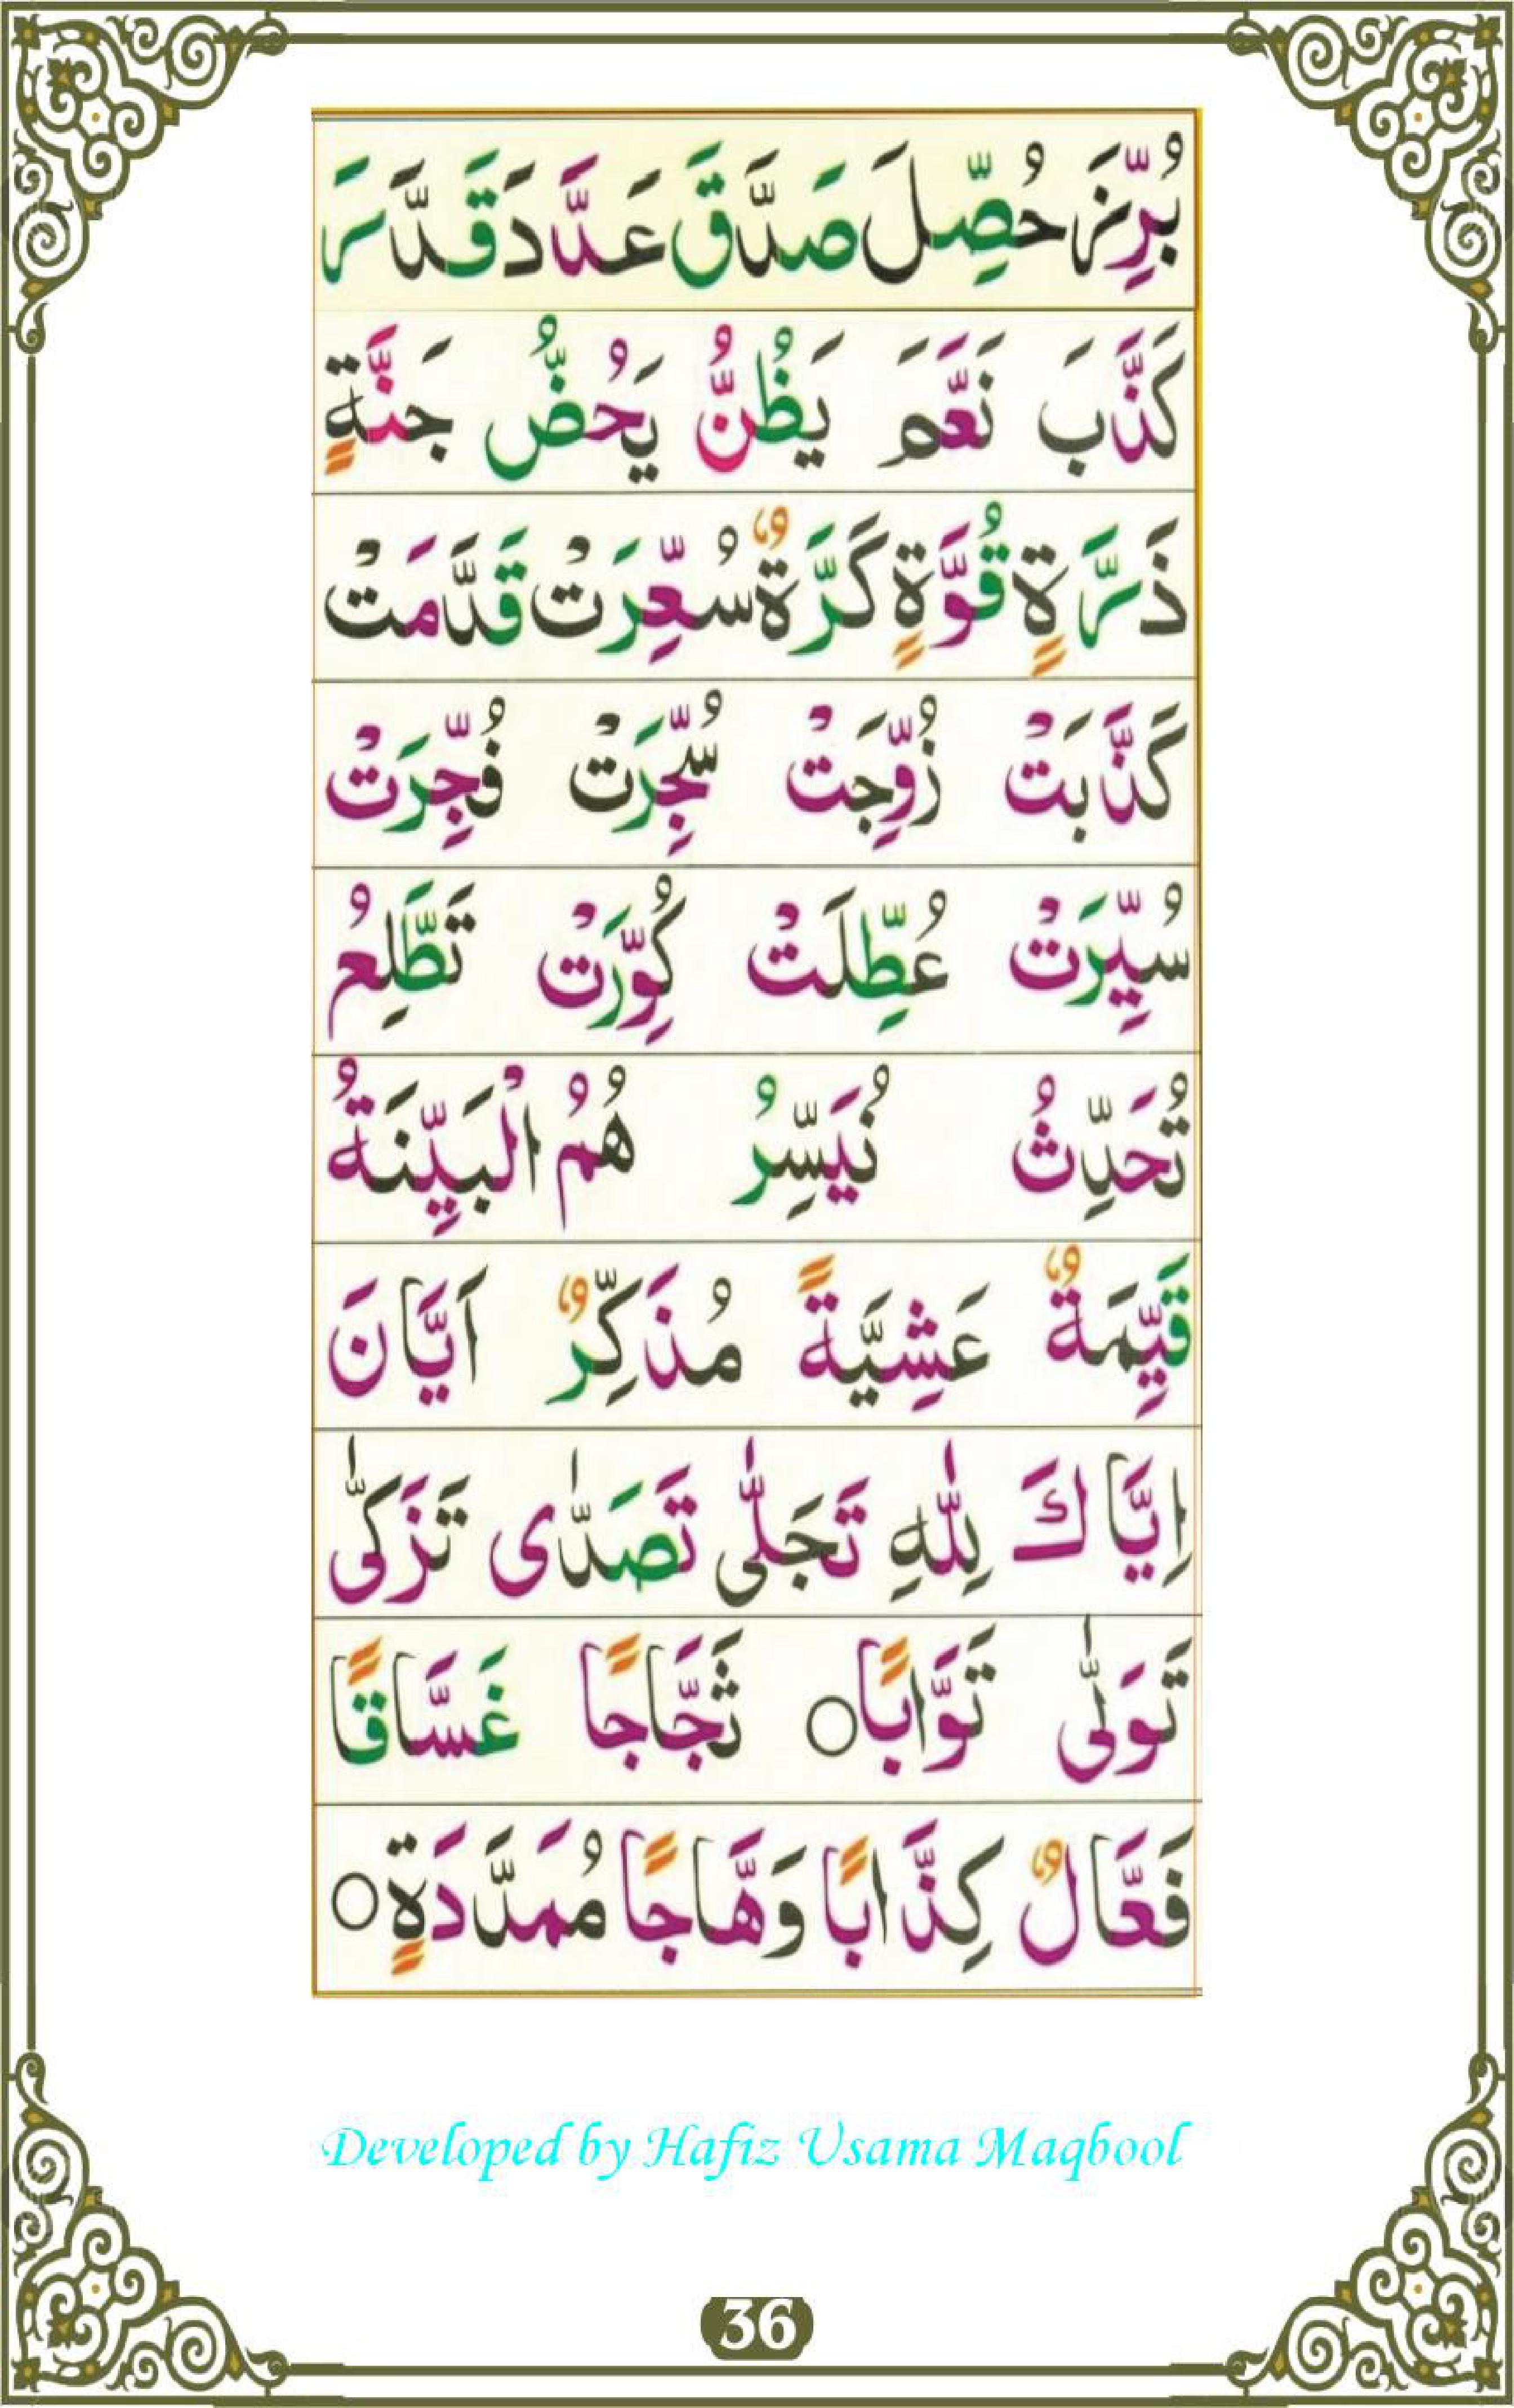 بُرِّزَ حُصِّلَ صَدَّقَ عَدَّدَ قَدَّرَ
كَذَّبَ نَعَّمَ يَظُنُّ يَحُضُّ جَنَّةٍ
ذَرَّةٍ قُوَّةٍ كَرَّةٌ سُعِّرَتْ قَدَّمَتْ
كَذَّبَتْ زُوِّجَتْ سُجِّرَتْ فُجِّرَتْ
سُيِّرَتْ عُطِّلَتْ كُوِّرَتْ تَطَّلِعُ
تُحَدِّثُ نُيَسِّرُ هُمُ الْبَيِّنَةُ
قَيِّمَةٌ عَشِيَّةً مُذَكِّرٌ اَيَّانَ
اِيَّاكَ لِلّٰهِ تَجَلّٰى تَصَدّٰى تَزَكّٰى
تَوَلّٰى تَوَّابًا○ ثَجَّاجًا غَسَّاقًا
فَعَّالٌ كِذَّابًا وَهَّاجًا مُمَدَّدَةٍ○
Developed by Hafiz Usama Maqbool
36